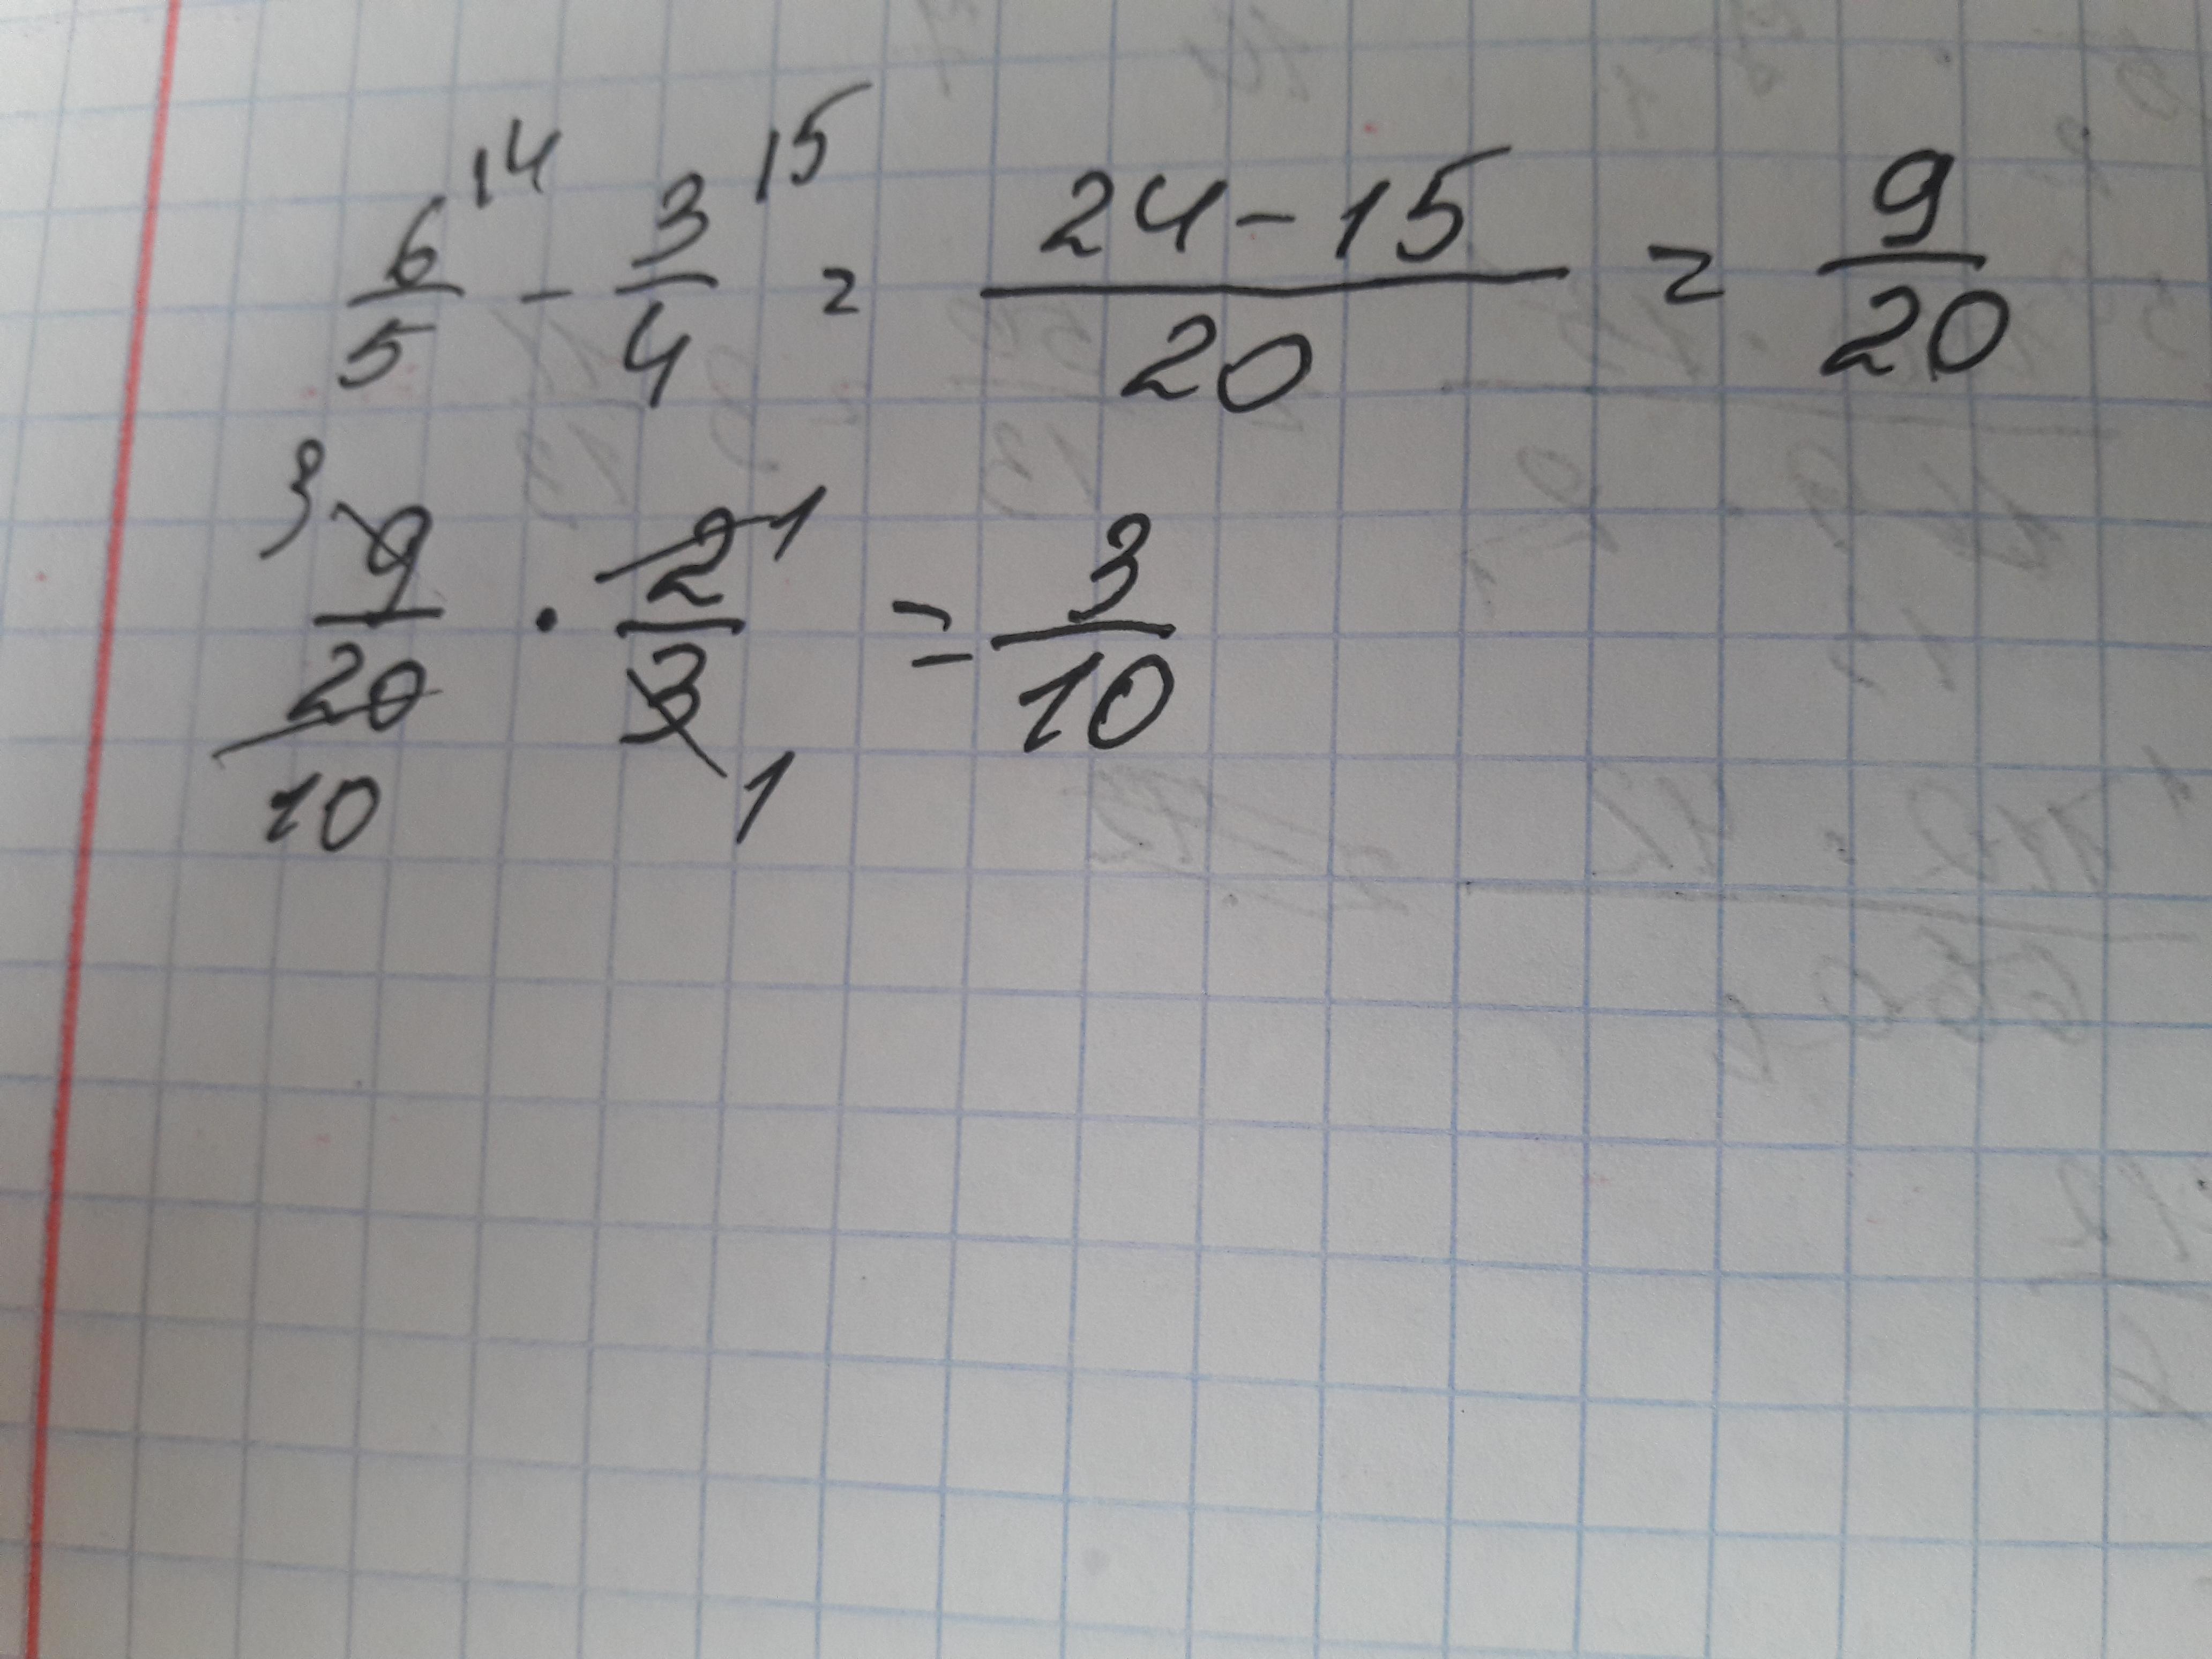 6/5 ⁽⁴ - 3/4 ⁽⁵ = (24-15)/20 = 9/20
³ 9/20 ₁₀ · 2/3 ¹ ₁ = 3/10